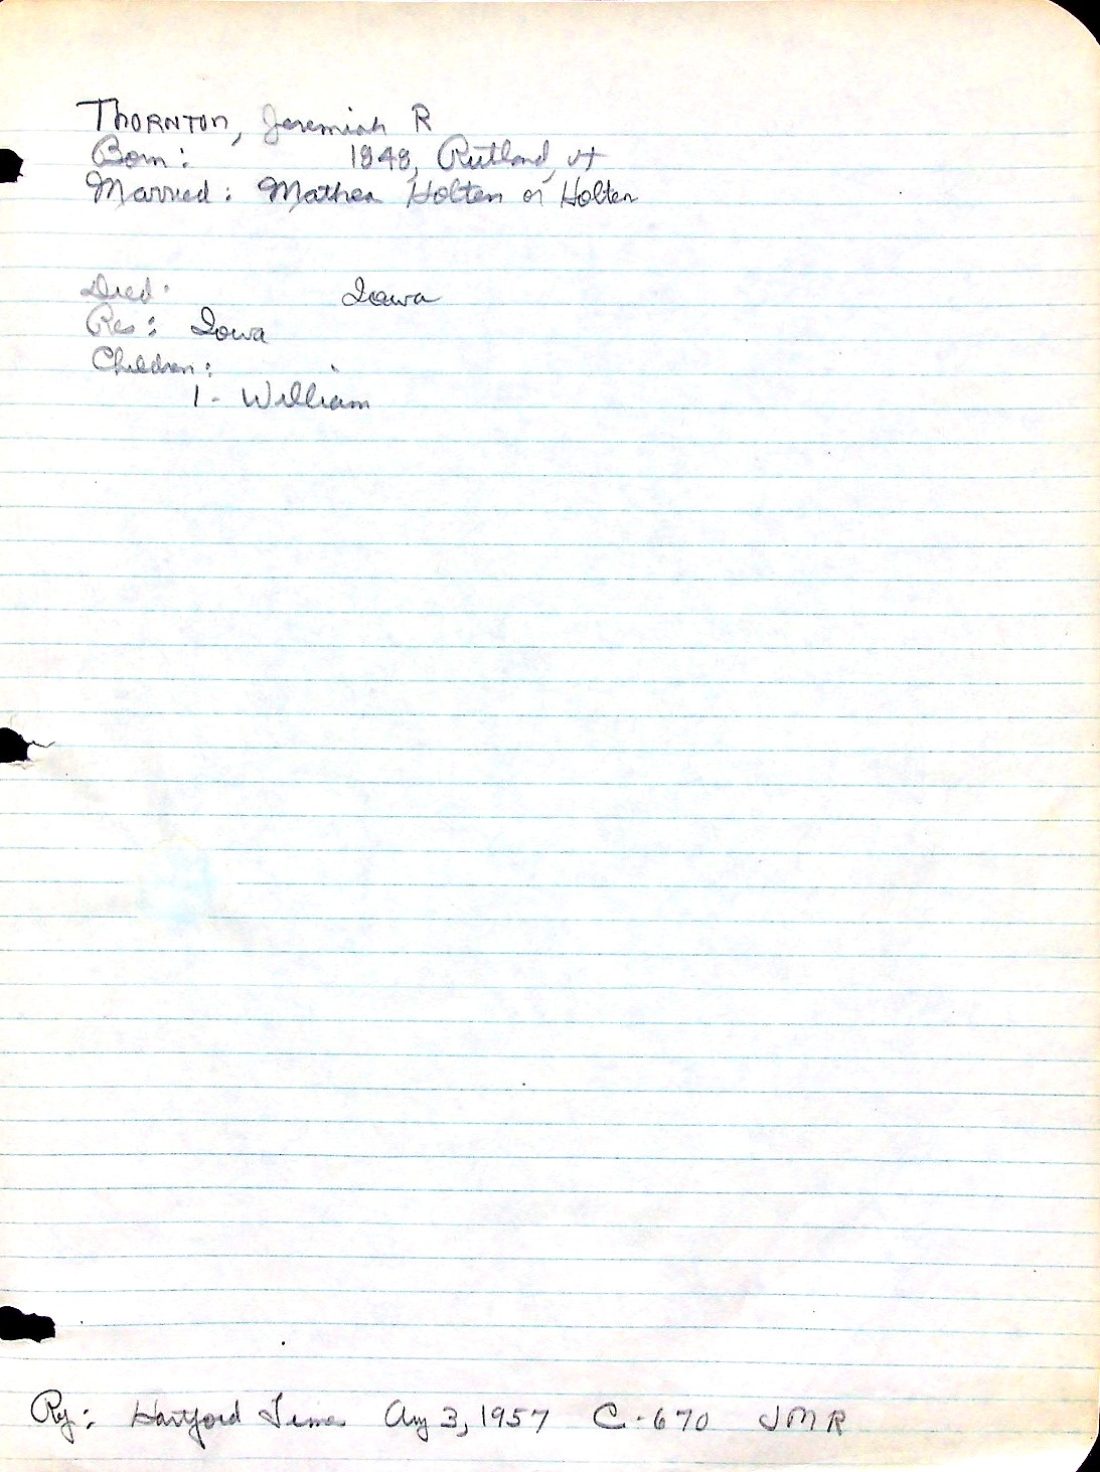 THORNTON, Jeremiah R
Born: 1848, Rutland, Vt
Married: Mathea Holten or Holter
Died: Iowa
Res: Iowa
Children:
1 - William
Ref: Hartford Times Aug 3, 1957 C-670 JMR